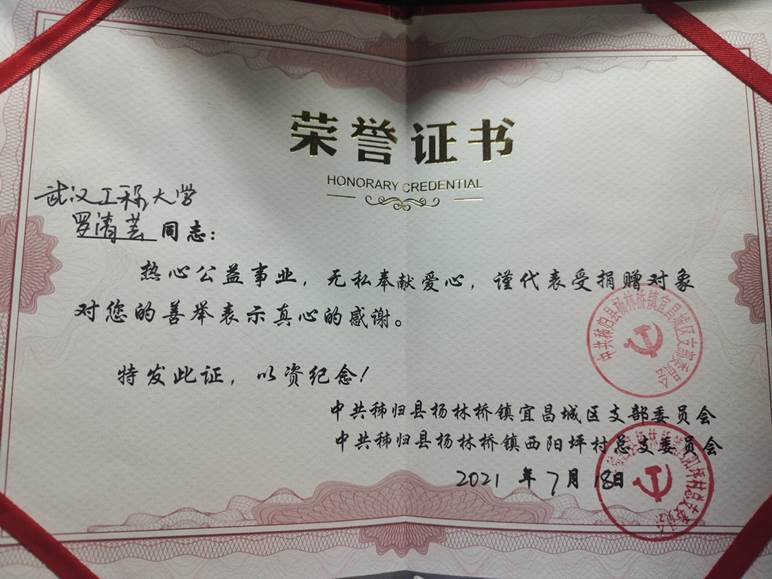 荣誉证书
HONORARY CREDENTIAL
武汉工程大学
罗清芸 同志：
热心公益事业，无私奉献爱心，谨代表受捐赠对象
对您的善举表示真心的感谢。
特发此证，以资纪念！
中共秭归县杨林桥镇宜昌城区支部委员会
中共秭归县杨林桥镇西阳坪村总支委员会
2021 年 7 月 18日
中共秭归县杨林桥镇宜昌城区支部委员会